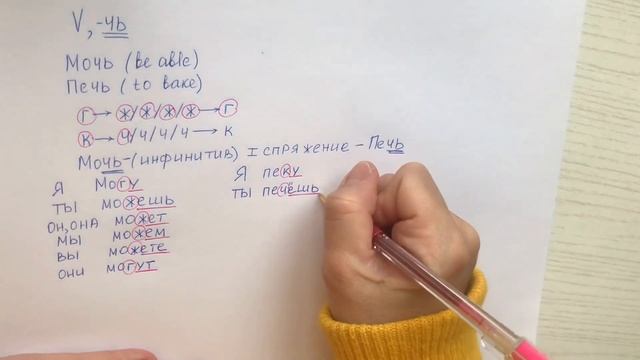 V, -чь
Мочь (be able)
Печь (to bake)
г → ж/ж/ж/ж → г
к → ч/ч/ч/ч → к
Мочь-(инфинитив) I спряжение - Печь
Я могу
ты можешь
он, она может
мы можем
вы можете
они могут
Я пеку
ты печешь